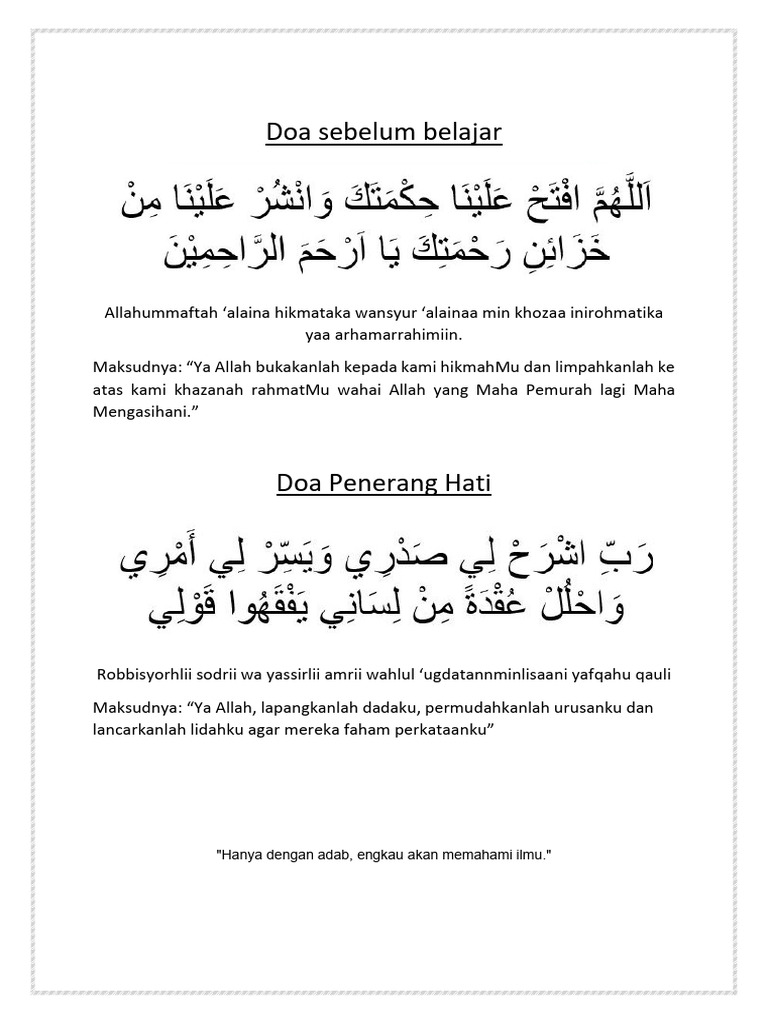 Doa sebelum belajar
اَللَّهُمَّ افْتَحْ عَلَيْنَا حِكْمَتَكَ وَانْشُرْ عَلَيْنَا مِنْ
خَزَائِنِ رَحْمَتِكَ يَا اَرْحَمَ الرَّاحِمِيْنَ
Allahummaftah ‘alaina hikmataka wansyur ‘alainaa min khozaa inirohmatika
yaa arhamarrahimiin.
Maksudnya: “Ya Allah bukakanlah kepada kami hikmahMu dan limpahkanlah ke
atas kami khazanah rahmatMu wahai Allah yang Maha Pemurah lagi Maha
Mengasihani.”
Doa Penerang Hati
رَبِّ اشْرَحْ لِي صَدْرِي وَيَسِّرْ لِي أَمْرِي
وَاحْلُلْ عُقْدَةً مِنْ لِسَانِي يَفْقَهُوا قَوْلِي
Robbisyorhlii sodrii wa yassirlii amrii wahlul ‘ugdatannminlisaani yafqahu qauli
Maksudnya: “Ya Allah, lapangkanlah dadaku, permudahkanlah urusanku dan
lancarkanlah lidahku agar mereka faham perkataanku”
"Hanya dengan adab, engkau akan memahami ilmu."